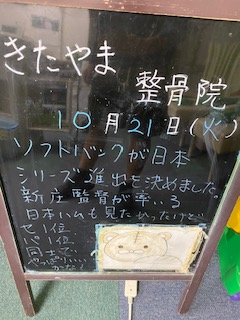 きたやま
整骨院
10月21日(火)
ソフトバンクが日本
シリーズ進出を決めました。
新庄監督が率いる
日本ハムも見たかったけど
セ1位
パ1位
同士で